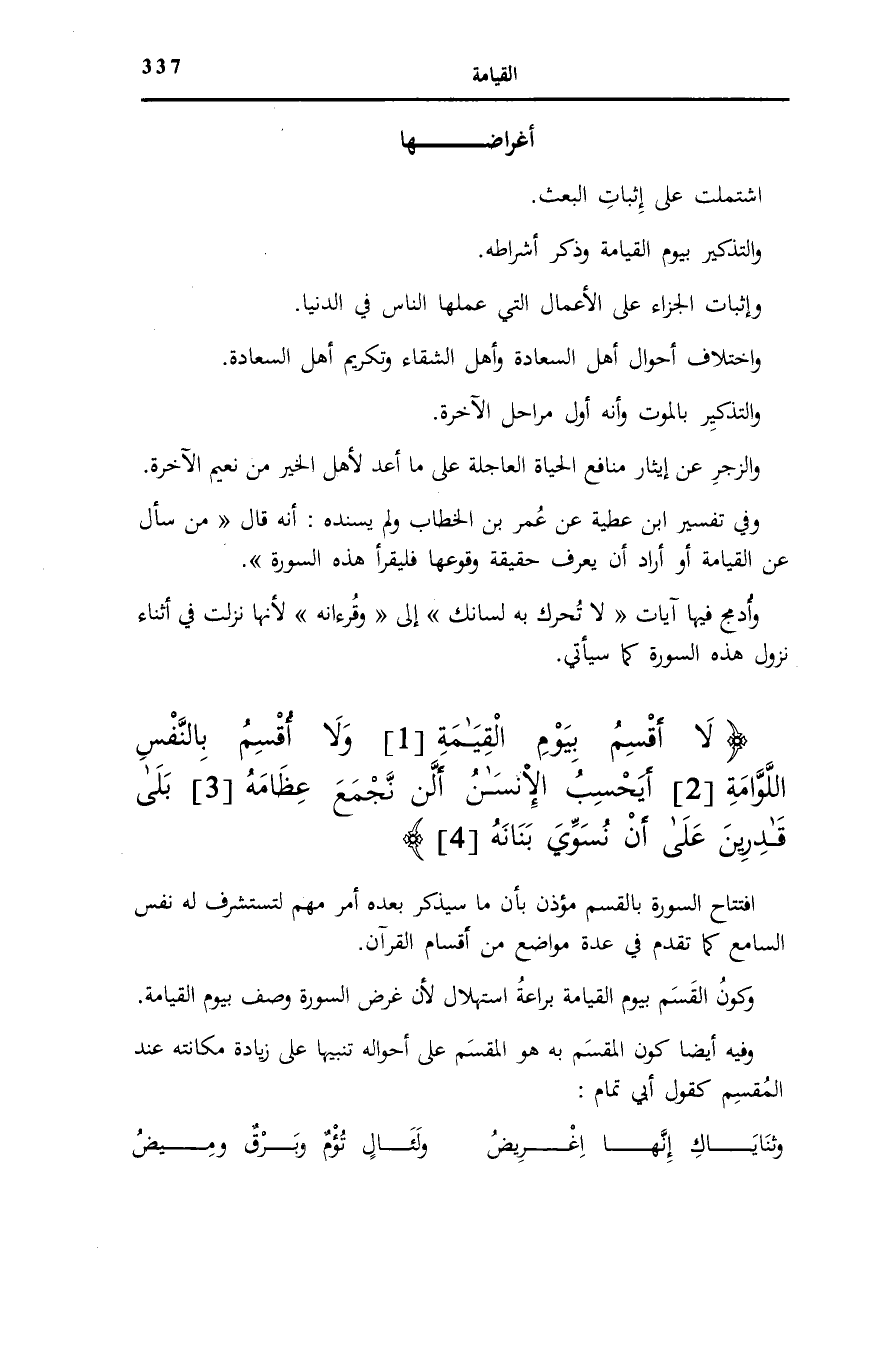 337
القيامة
أغراضها
اشتملت على إثباتِ البعث.
والتذكير بيوم القيامة وذكر أشراطه.
وإثبات الجزاء على الأعمال التي عملها الناس في الدنيا.
واختلاف أحوال أهل السعادة وأهل الشقاء وتكريم أهل السعادة.
والتذكيرِ بالموت وأنه أول مراحل الآخرة.
والزجرِ عن إيثار منافع الحياة العاجلة على ما أعد لأهل الخير من نعيم الآخرة.
وفي تفسير ابن عطية عن عُمر بن الخطاب ولم يسنده : أنه قال « من سأل
عن القيامة أو أراد أن يعرف حقيقة وقوعها فليقرأ هذه السورة ».
وأُدمج فيها آيات « لا تُحرك به لسانك » إلى « وقُرءانه » لأنها نزلت في أثناء
نزول هذه السورة كما سيأتي.
﴿ لَا أُقْسِمُ بِيَوْمِ الْقِيَـٰمَةِ [1] وَلَا أُقْسِمُ بِالنَّفْسِ
اللَّوَّامَةِ [2] أَيَحْسِبُ الإْنسَـٰنُ أَلَّن نَّجْمَعَ عِظَامَهُ [3] بَلَىٰ
قَـٰدِرِينَ عَلَىٰ أَنْ نُسَوِّيَ بَنَانَهُ [4] ﴾
افتتاح السورة بالقسم مؤذن بأن ما سيذكر بعده أمر مهم لتستشرف له نفس
السامع كما تقدم في عدة مواضع من أقسام القرآن.
وكونُ القَسَم بيوم القيامة براعةُ استهلال لأن غرض السورة وصف بيوم القيامة.
وفيه أيضا كون المقسَم به هو المقسَم على أحواله تنبيها على زيادة مكانته عند
المُقسِم كقول أبي تمام :
وثنَايَـاكِ إنَّهـا إغْـرِيضُ ولَئَـالٍ تُؤْمٌ وبَـرْقٌ ومِـيضُ